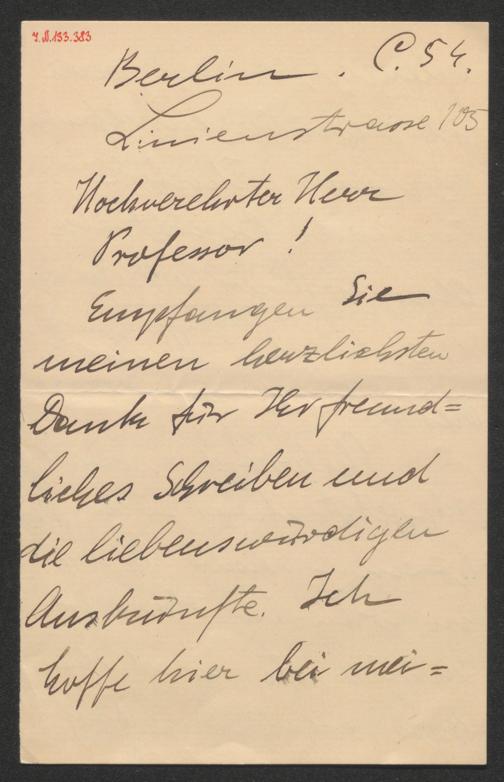 I.N.133.383
Berlin. C. 54.
Linienstrasse 105
Hochverehrter Herr
Professor!
Empfangen Sie
meinen herzlichsten
Dank für Ihr freund=
liches Schreiben und
die liebenswürdigen
Auskünfte. Ich
hoffe hier bei mei=